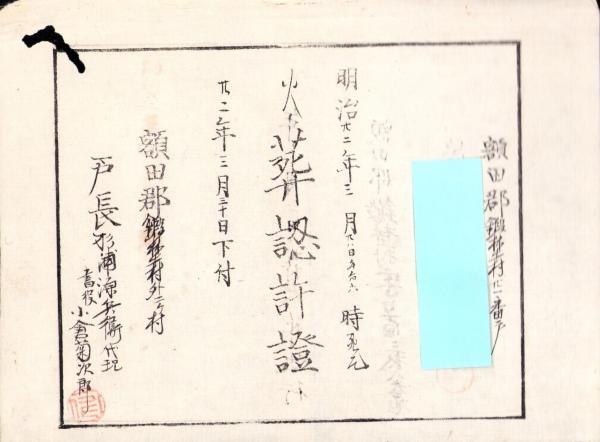 額田郡鍛埜村廿一番戸
明治廿二年三月廿八日午后六時死亡
火葬認許證
廿二年三月三十日下付
額田郡鍛埜村外三ヶ村
戸長杉浦源兵衛代理
書役小倉菊次郎